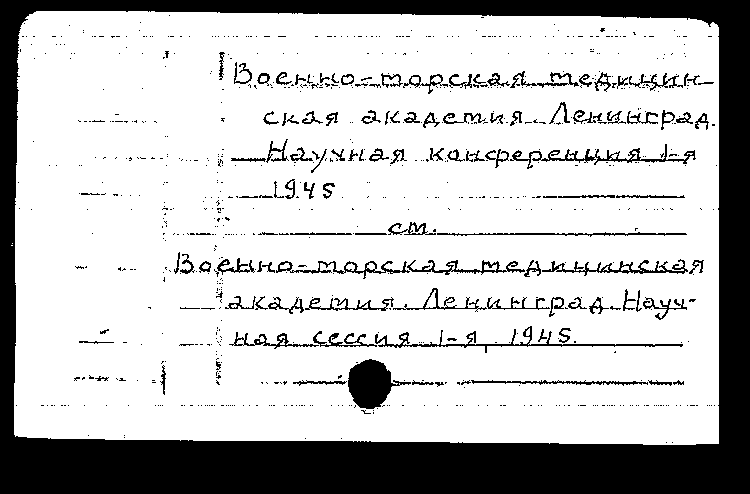 Военно-морская медицин-
ская академия. Ленинград.
Научная конференция 1-я
1945
см.
Военно-морская медицинская
академия. Ленинград. Науч-
ная сессия 1-я, 1945.